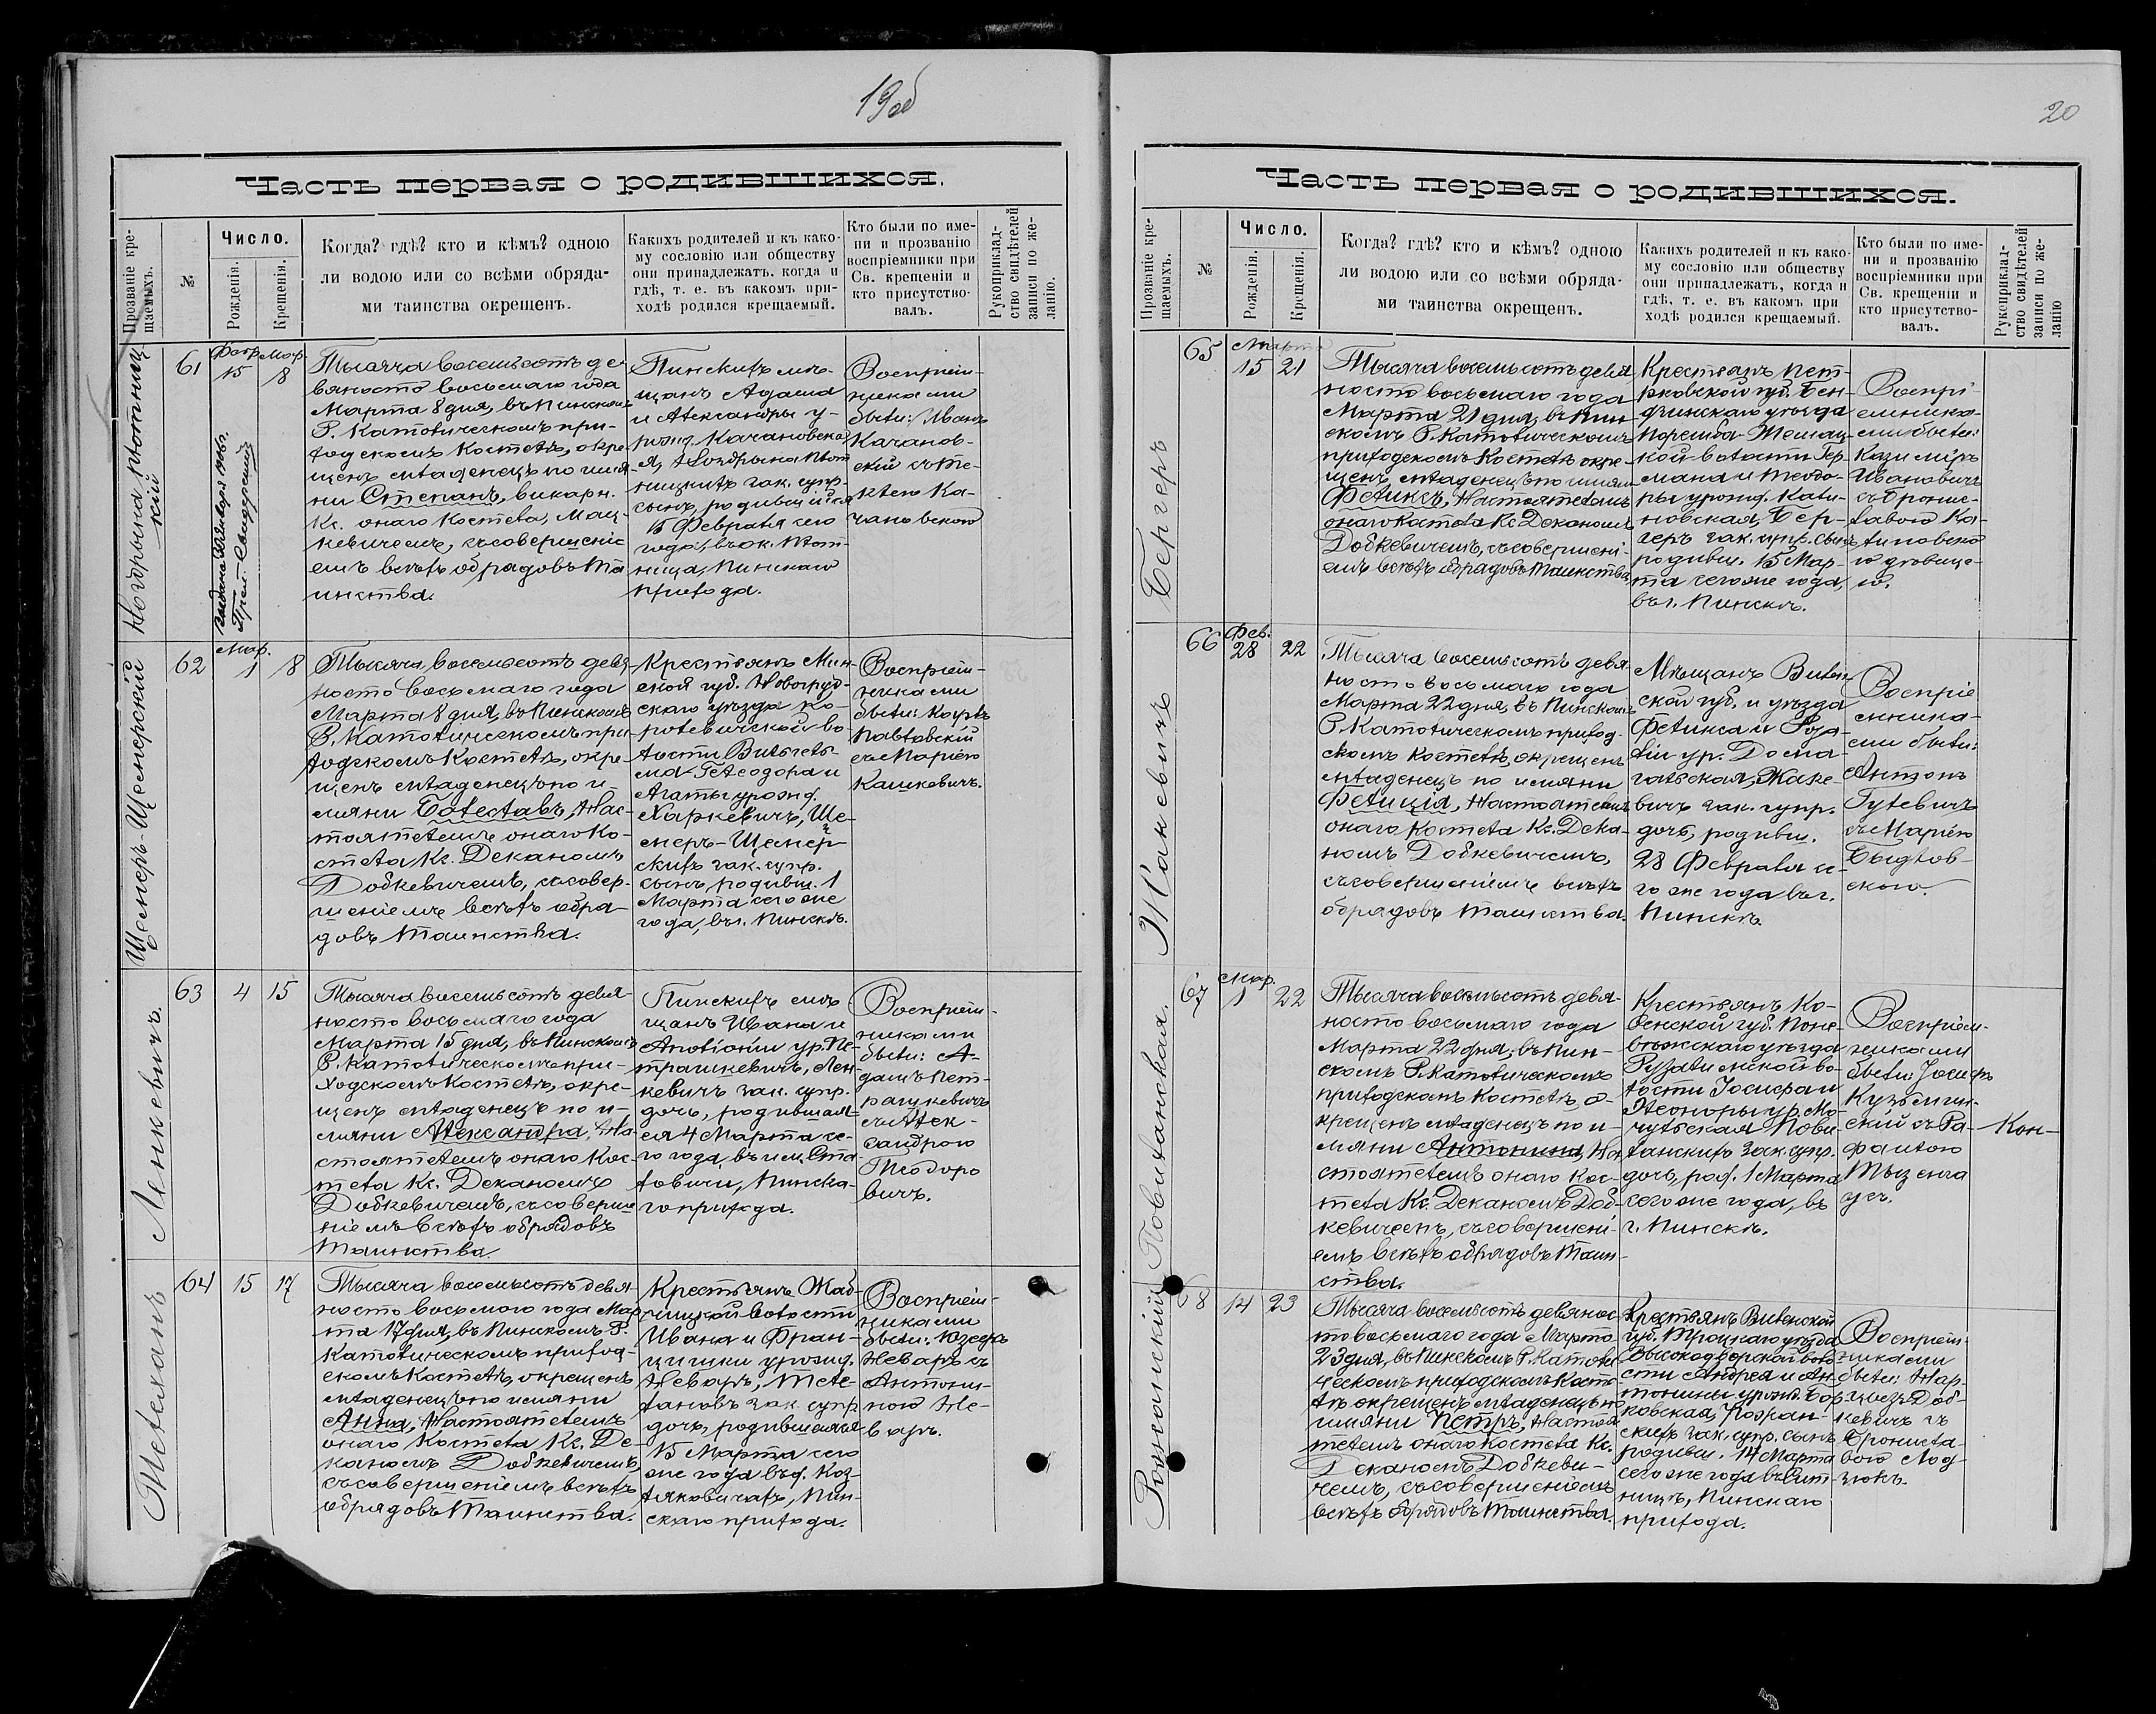 19об
Часть первая о родившихся.
Прозваніе кре-
щаемыхъ.
№
Число.
Рожденія.
Крещенія.
Когда? гдѣ? кто и кѣмъ? одною
ли водою или со всѣми обряда-
ми таинства окрещенъ.
Какихъ родителей и къ како-
му сословію или обществу
они принадлежатъ, когда и
гдѣ, т. е. въ какомъ при-
ходѣ родился крещаемый.
Кто были по име-
ни и прозванію
воспріемники при
Св. крещеніи и
кто присутство-
валъ.
Рукоприклад-
ство свидѣтелей
записи по же-
ланію.
61
Февр.
15
Мар.
8
Тысяча восемьсотъ де-
вяносто восьмаго года
Марта 8 дня, въ Пинскомъ
Р. Католическомъ при-
ходскомъ Костелѣ, окре-
щенъ младенецъ по имя-
ни Степанъ, викарн.
Кс. онаго Костела, Мац-
кевичемъ, съ совершені-
емъ всѣхъ обрядовъ Та
инства.
Пинскихъ мѣ-
щанъ Адама
и Александры у-
рожд. Качановска-
я,
ницкихъ зак. супр.
сынъ, родившійся
15 Февраля сего
года, въ ок. Плот-
ница, Пинскаго
прихода.
Воспріем-
никами
были: Иванъ
Качанов-
скій съ Те-
клею Ка-
чановскою
Щемеръ-Щемерскій
62
Мар.
1
8
Тысяча восемьсотъ девя
носто восьмаго года
Марта 8 дня, въ Пинскомъ
Р. Католическомъ при
ходскомъ Костелѣ, окре-
щенъ младенецъ по и-
мяни Болеславъ, Нас-
тоятелемъ онаго Ко-
стела Кс. Деканомъ
Добкевичемъ, съ совер-
шеніемъ всѣхъ обря-
довъ Таинства.
Крестьянъ Мин-
ской губ. Новогруд-
скаго уѣзда Ко-
релевичской во-
лости
Агаты урожд.
Харкевичъ, Ще-
меръ-Щемер
скихъ зак. супр.
сынъ, родивш. 1
Марта сего же
года, въ г. Пинскѣ.
Воспріем-
никами
были: Карлъ
Павловскій
съ Маріею
Кашкевичъ.
Ленкевичъ.
63
4
15
Тысяча восемьсотъ девя-
носто восьмаго года
Марта 15 дня, въ Пинскомъ
Р. Католическомъ при-
ходскомъ Костелѣ, окре-
щенъ младенецъ по и-
мяни Александра, На-
стоятелемъ онаго Кос-
тела Кс. Деканомъ
Добкевичемъ, съ соверше
ніемъ всѣхъ обрядовъ
Таинства.
Пинскихъ мѣ
щанъ Ивана и
Аполоніи ур. Пе-
трашкевичъ, Лен-
кевичъ зак. супр.
дочь, родившая-
ся 4 Марта се-
го года, въ им. Ста
ховичи, Пинска-
го прихода.
Воспріем-
никами
были: А-
дамъ Пет-
рашкевичъ
съ Алек-
сандрою
Теодоро
вичъ.
Телеханъ
64
15
17
Тысяча восемьсотъ девя
носто восьмаго года Мар
та 17 дня, въ Пинскомъ Р.
Католическомъ приход-
скомъ Костелѣ, окрещенъ
младенецъ по имяни
Анна, Настоятелемъ
онаго Костела Кс. Де-
каномъ Добкевичемъ,
съ совершеніемъ всѣхъ
обрядовъ Таинства.
Крестьянъ Жаб-
чицкой волости
Ивана и Фран-
цишки урожд.
Неваръ, Теле-
хановъ зак. супр
дочь, родившаяся
15 Марта сего
же года въ д. Коз-
ляковичахъ, Пин-
скаго прихода.
Воспріем-
никами
были: Юзефъ
Неваръ съ
Антони-
ною Не-
варъ.
20
Часть первая о родившихся.
Прозваніе кре-
щаемыхъ.
№
Число.
Рожденія.
Крещенія.
Когда? гдѣ? кто и кѣмъ? одною
ли водою или со всѣми обряда-
ми таинства окрещенъ.
Какихъ родителей и къ како-
му сословію или обществу
они принадлежатъ, когда и
гдѣ, т. е. въ какомъ при
ходѣ родился крещаемый.
Кто были по име-
ни и прозванію
воспріемники при
Св. крещеніи и
кто присутство-
валъ.
Рукоприклад-
ство свидѣтелей
записи по же-
ланію
Бергеръ
65
Марта
15
21
Тысяча восемьсотъ девя
носто восьмаго года
Марта 21 дня, въ Пин
скомъ Р. Католическомъ
приходскомъ Костелѣ окре-
щенъ младенецъ по имяни
Феликсъ, Настоятелемъ
онаго Костела Кс. Деканомъ
Добкевичемъ, съ совершені-
емъ всѣхъ обрядовъ Таинства.
Крестьянъ Пет-
роковской губ. Бен-
динскаго уѣзда
кой волости Гер
мана и Теодо-
ры урожд. Кали-
новская, Бер-
геръ зак. супр. сынъ
родивш. 15 Мар-
та сего же года,
въ г. Пинскѣ.
Воспрі-
емника-
ми были:
Казиміръ
Ивановичъ
съ Бронис-
лавою Ка-
линовско
ю
ю.
Жакевичъ
66
Фев.
28
22
Тысяча восемьсотъ девя-
носто восьмаго года
Марта 22 дня, въ Пинскомъ
Р. Католическомъ приход-
скомъ Костелѣ, окрещенъ
младенецъ по имяни
Фелиція, Настоятелемъ
онаго Костела Кс. Дека-
номъ Добкевичемъ,
съ совершеніемъ всѣхъ
обрядовъ Таинства.
Мѣщанъ Вилен
ской губ. и уѣзда
Феликса и Роза-
ліи ур. Дома-
гальская, Жаке-
вичъ зак. супр.
дочь, родивш.
28 Февраля се-
го же года въ г.
Пинскѣ.
Воспріе
мника-
ми были:
Антонъ
Гулевичъ
съ Маріею
ско.
Повиланская.
67
Мар.
1
22
Тысяча восемьсотъ девя-
носто восьмаго года
Марта 22 дня, въ Пин-
скомъ Р. Католическомъ
приходскомъ Костелѣ, о-
крещенъ младенецъ по и-
мяни Антонина, На
стоятелемъ онаго Кос-
тела Кс. Деканомъ Доб-
кевичемъ, съ совершені-
емъ всѣхъ обрядовъ Таин-
ства.
Крестьянъ Ко-
венской губ. Поне-
вѣжскаго уѣзда
лости Іосифа и
Элеоноры ур. Мо-
чульская Пови-
ланскихъ зак. супр.
дочь, род. 1 Марта
сего же года, въ
г. Пинскѣ.
Воспріем-
никами
были: Іосифъ
Кузьмин-
скій съ Ра-
фаилою
Кон-
Рожанскій
68
14
23
Тысяча восемьсотъ девянос-
то восьмаго года Марта
23 дня, въ Пинскомъ Р. Католи
ческомъ приходскомъ Косте-
лѣ окрещенъ младенецъ по
имяни Петръ, Настоя
телемъ онаго Костела Кс.
Деканомъ Добкеви-
чемъ, съ совершеніемъ
всѣхъ обрядовъ Таинства.
Крестьянъ Виленской
губ. Троцкаго уѣзда
Высокодворской воло-
сти Андрея и Ан-
тонины урожд. Бор-
ковская, Рожан-
скихъ зак. супр. сынъ
родивш. 14 Марта
сего же года въ Плот-
ницѣ, Пинскаго
прихода.
Воспріем-
никами
были: Нар-
цызъ Доб-
кевичъ съ
Брониста-
вою Лод-
зюкъ.